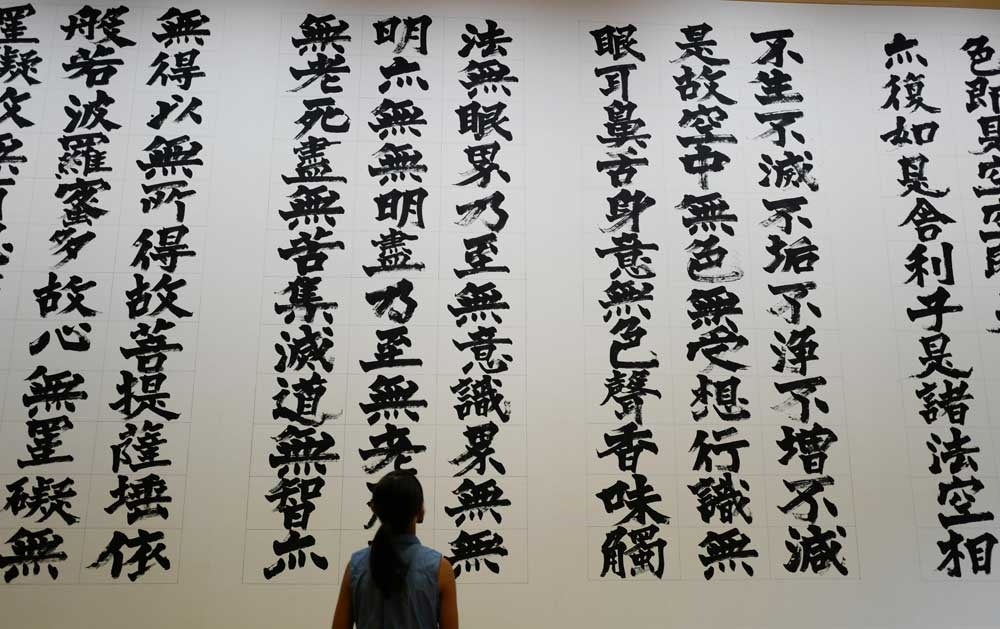 色即是空空即
亦復如是舍利子是諸法空相
不生不滅不垢不淨不增不減
是故空中無色無受想行識無
眼耳鼻舌身意無色聲香味觸
法無眼界乃至無意識界無無
明亦無無明盡乃至無老
無老死盡無苦集滅道無智亦
無得以無所得故菩提薩埵依
般若波羅蜜多故心無罣礙無
罣礙故無